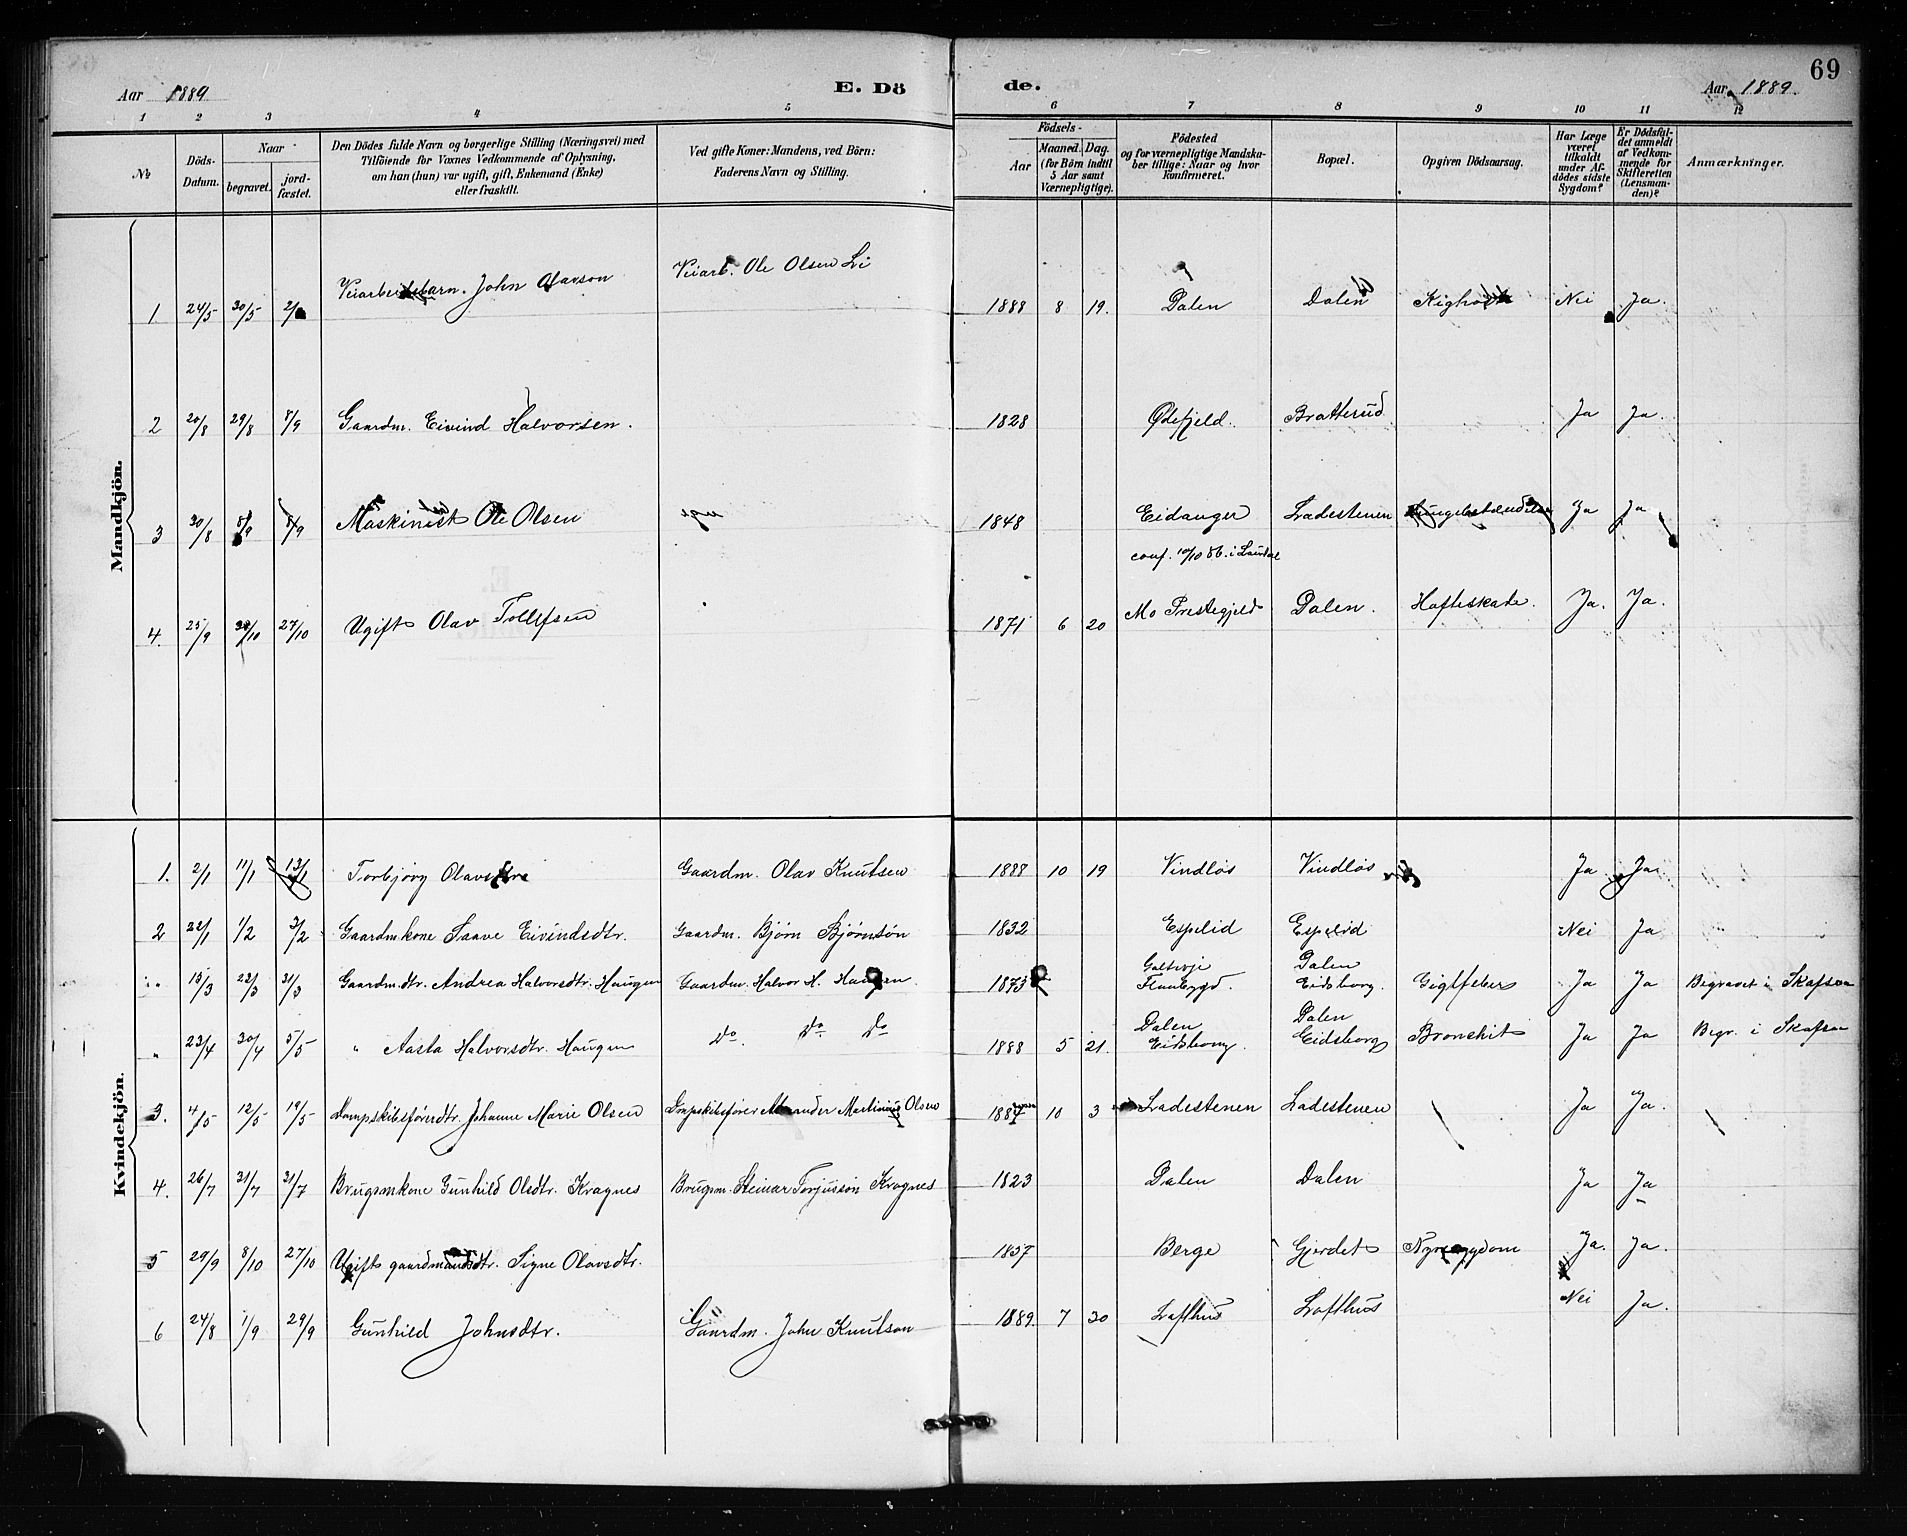 69
Aar 1889 E. Dö de. Aar 1889.
1 2 3 4 5 6 7 8 9 10 11 12
№ Döds-Datum. Naar begravet. jord-fæstet. Den Dödes fulde Navn og borgerlige Stilling (Næringsvei) med Tilföiende for Voxnes Vedkommende af Oplysning, om han (hun) var ugift, gift, Enkemand (Enke) eller fraskilt. Ved gifte Koner: Mandens, ved Börn: Faderens Navn og Stilling. Födsels- Aar Maaned. Dag. (for Börn indtil 5 Aar samt Værnepligtige). Födested og for værnepligtige Mandska-ber tillige: Naar og hvor konfirmeret. Bopæl. Opgiven Dödsaarsag. Har Læge været tilkaldt under Af-dödes sidste Sygdom? Er Dödsfal-det anmeldt af Vedkom-mende for Skifteretten (Lensman-den)? Anmærkninger.
Mandkjön.
1 24/5 30/5 Veiarbeidsbarn. John Olavson Veiarb. Ole Olsen Li 1888 8 19. Dalen Dalen Kighoste Nei Ja.
2 20/8 29/8 8/9 Gaardm. Eivind Halvorsen. 1828 Ødefjeld. Bratterud Ja Ja.
3 30/8 8/9 8/9 Maskinist Ole Olsen 1848 Eidanger Ladestenen Lungebetændelse Ja Ja
conf. 10/10 86. i Laurdal
4. 25/9 27/10 Ugift Olav Tollefsen 1871 6 20 Mo Prestegjeld Dalen. Hofteskade. Ja. Ja.
Kvindekjön.
1. 2/1 11/1 13/1 Torbjørg Olavsdtr Gaardm. Olav Knutsen 1888 10 19 Vindløs Vindløs Ja Ja.
2 22/1 1/2 3/2 Gaardmkone Saave Eivindsdtr. Gaardm. Bjørn Bjørnsøn 1832 Espelid Espelid Nei Ja
" 15/3 22/3 31/3 Gaardm.dtr. Andrea Halvorsdtr. Haugen Gaardm. Halvor H. Haugen. 1873 Flaabygd. Dalen Eidsborg. Gigtfeber Ja Ja Begravet i Skafsaa
" 23/4 30/4 5/5 " Aasta Halvorsdtr. Haugen Do. Do Do 1888 5 21. Dalen Eidsborg. Dalen Eidsborg Bronchit Ja Ja Begr. i Skafsaa
3. 4/5 12/5 19/5 Dampskibsførerdtr. Johanne Marie Olsen Dmpskibsfører Alexander Martinius Olsen 1887 10 3 Ladestenen Ladestenen Ja Ja.
4. 26/7 31/7 31/7 Brugsmkone Gunhild Olsdtr. Kragnes Brugsm. Steinar Torjusson Kragnes 1823 Dalen Dalen Ja Ja
5 29/9 8/10 27/10 Ugift gaardmandsdtr. Signe Olavsdtr. 1837 Berge Gjerdet Nyresygdom Ja. Ja.
6 24/8 1/9 29/9 Gunhild Johnsdtr. Gaardm. John Knutson 1889. 7 30 Lofthus Lofthus Nei Ja.